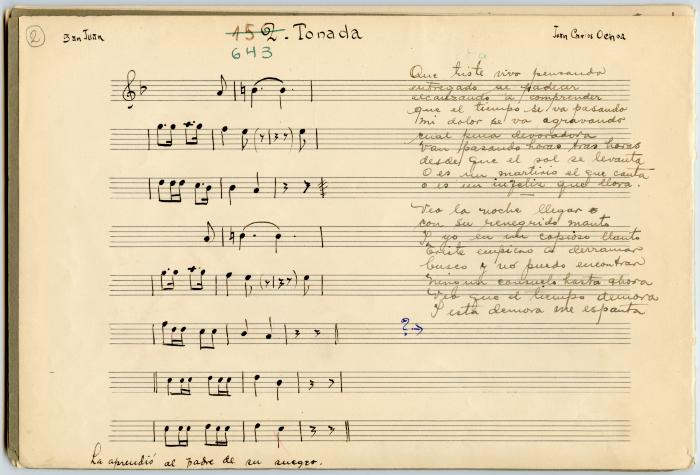 2
San Juan
152.-Tonada
643
Juan Carlos Ochoa
Que triste vivo pensando
entregado se padecer
alcanzando a comprender
que el tiempo se va pasando
Mi dolor se va agravando
cual pena devoradora
Van pasando horas tras horas
desde que el sol se levanta
O es un martirio el que canta
o es un infeliz que llora.
Veo la noche llegar
con su renegrido manto
Y yo en un copioso llanto
Triste empiezo a derramar
busco y no puedo encontrar
Ningun consuelo hasta ahora
Veo que el tiempo demora
Y esta demora me espanta
?→
La aprendió al padre de su suegro.